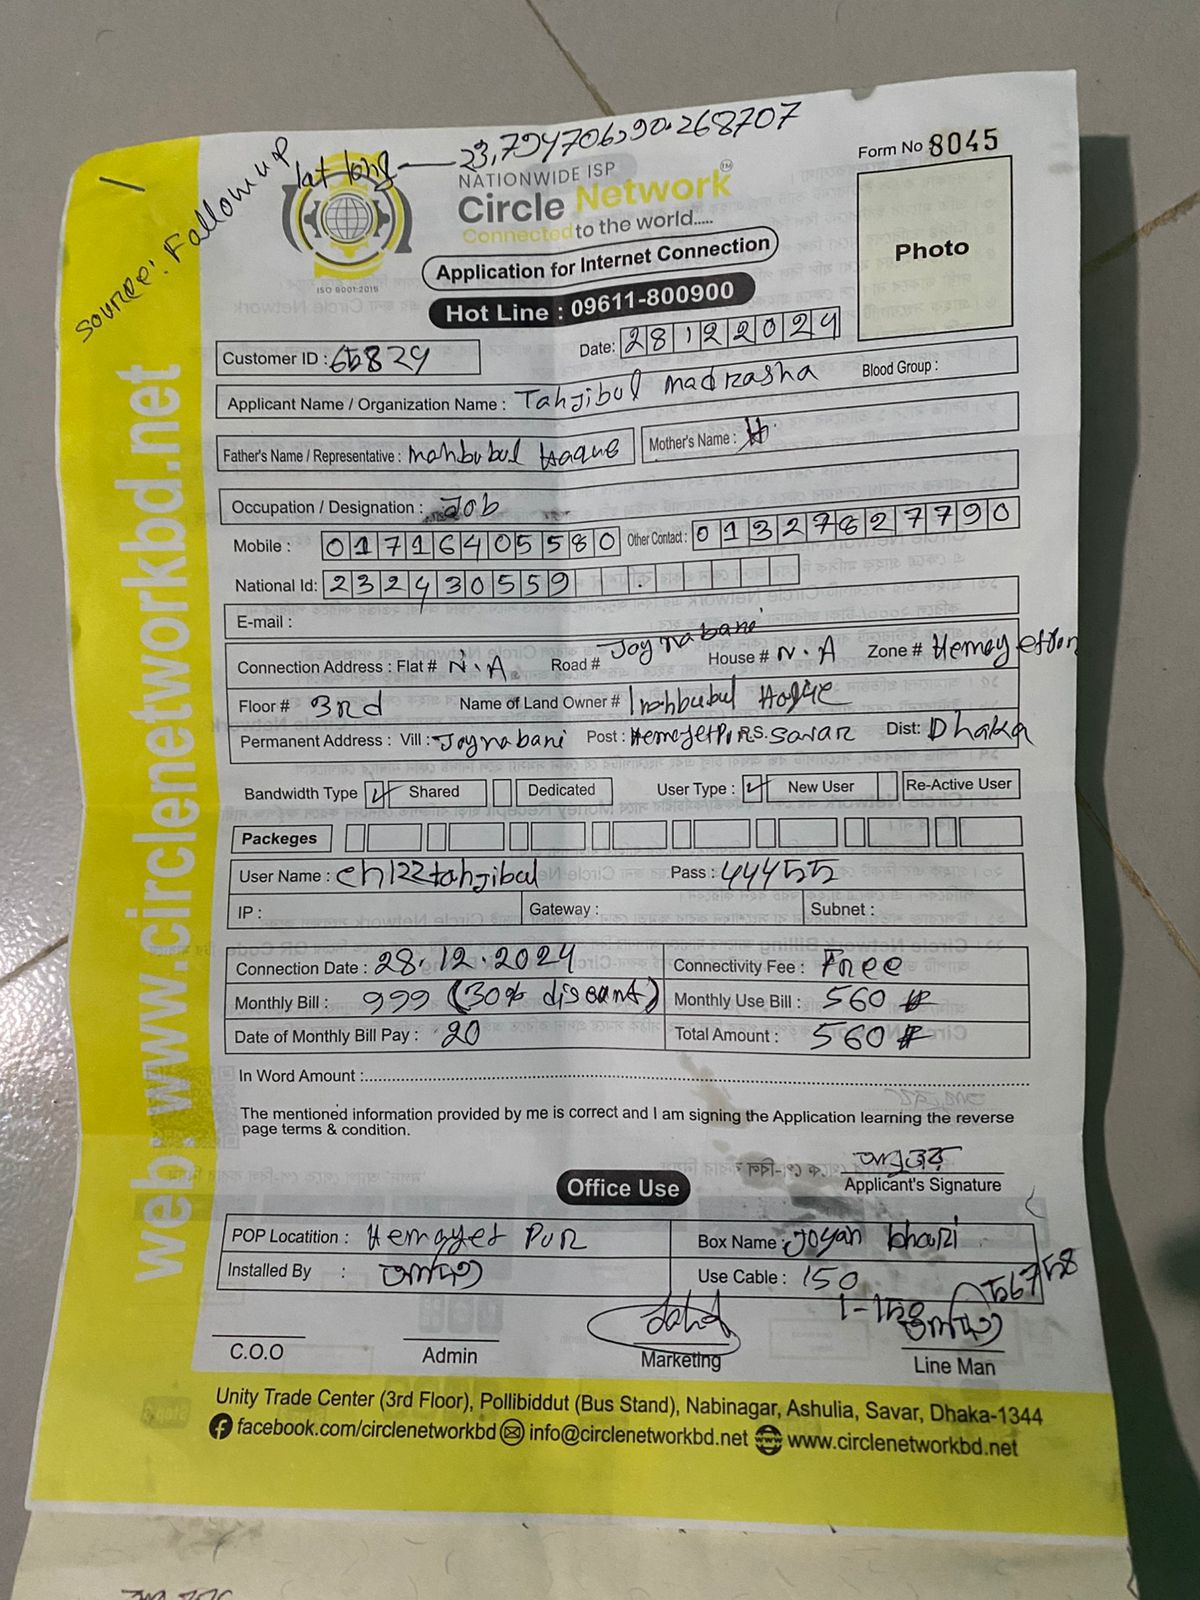 source: Follow up
lat long — 23,794706,90.268707
NATIONWIDE ISP
Circle Network™
Connected to the world.....
ISO 9001:2015
Form No 8045
Photo
Application for Internet Connection
Hot Line : 09611-800900
Customer ID : 65829
Date: 28122024
Applicant Name / Organization Name : Tahjibul madrasha Blood Group :
Father's Name / Representative : mahbubul Haque Mother's Name :
Occupation / Designation : Job
Mobile : 01716405580 Other Contact : 01327827790
National Id: 232430559
E-mail :
Connection Address : Flat # N.A Road # Joynabani House # N.A Zone #
Floor # 3rd Name of Land Owner #
Permanent Address : Vill : Joynabani Post : Dist: Dhaka
Bandwidth Type ✓ Shared Dedicated User Type : ✓ New User Re-Active User
Packeges
User Name : ch122tahjibul Pass : 44455
IP : Gateway : Subnet :
Connection Date : 28.12.2024 Connectivity Fee : Free
Monthly Bill : 999 (30% discant) Monthly Use Bill : 560
Date of Monthly Bill Pay : 20 Total Amount : 560
In Word Amount :
The mentioned information provided by me is correct and I am signing the Application learning the reverse
page terms & condition.
Applicant's Signature
Office Use
POP Locatition : Hemayet Pur Box Name : Joyan bhari
Installed By : Use Cable : 150
C.O.O Admin Marketing Line Man
Unity Trade Center (3rd Floor), Pollibiddut (Bus Stand), Nabinagar, Ashulia, Savar, Dhaka-1344
facebook.com/circlenetworkbd info@circlenetworkbd.net www.circlenetworkbd.net
web: www.circlenetworkbd.net